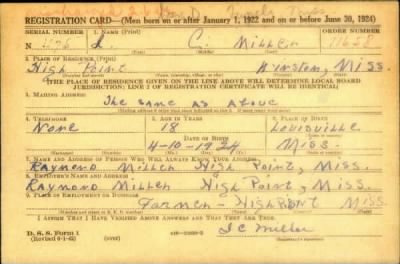 REGISTRATION CARD—(Men born on or after January 1, 1922 and on or before June 30, 1924)
SERIAL NUMBER 1. NAME (Print) ORDER NUMBER
C. Miller 11658
2. PLACE OF RESIDENCE (Print)
High Point Winston, Miss.
[THE PLACE OF RESIDENCE GIVEN ON THE LINE ABOVE WILL DETERMINE LOCAL BOARD
JURISDICTION; LINE 2 OF REGISTRATION CERTIFICATE WILL BE IDENTICAL]
3. MAILING ADDRESS
The same as above
4. TELEPHONE 5. AGE IN YEARS 6. PLACE OF BIRTH
None 18 Louisville
DATE OF BIRTH
4-10-1924 Miss.
7. NAME AND ADDRESS OF PERSON WHO WILL ALWAYS KNOW YOUR ADDRESS
Raymond Miller High Point, Miss.
8. EMPLOYER'S NAME AND ADDRESS
Raymond Miller High Point, Miss.
9. PLACE OF EMPLOYMENT OR BUSINESS
Farmer - High Point Miss
I AFFIRM THAT I HAVE VERIFIED ABOVE ANSWERS AND THAT THEY ARE TRUE.
D. S. S. Form 1
(Revised 6-1-42)
I C Miller